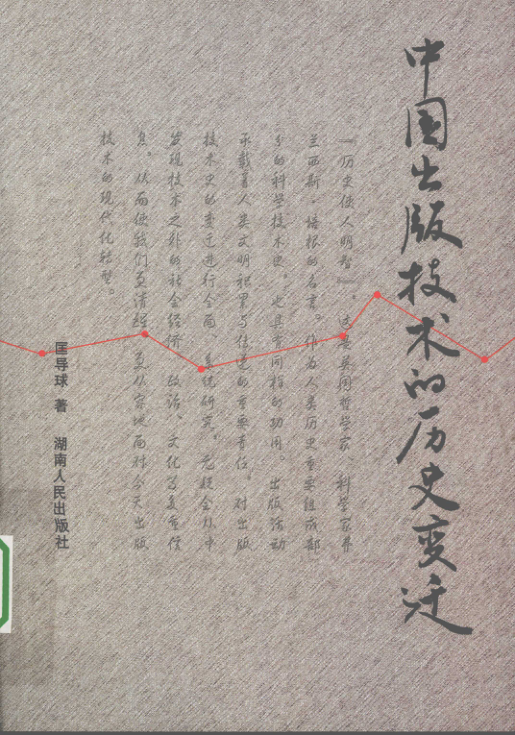 中国出版技术的历史变迁
“历史使人明智”，这是英国哲学家、科学家弗
兰西斯·培根的名言。作为人类历史重要组成部
分的科学技术史，也具有同样的功用。出版活动
承载着人类文明积累与传递的重要责任。对出版
技术史的变迁进行全面、系统研究，无疑会从中
发现技术之外的社会经济、政治、文化等多重信
息，从而使我们更清醒、更从容地面对今天出版
技术的现代化转型。
匡导球 著 湖南人民出版社